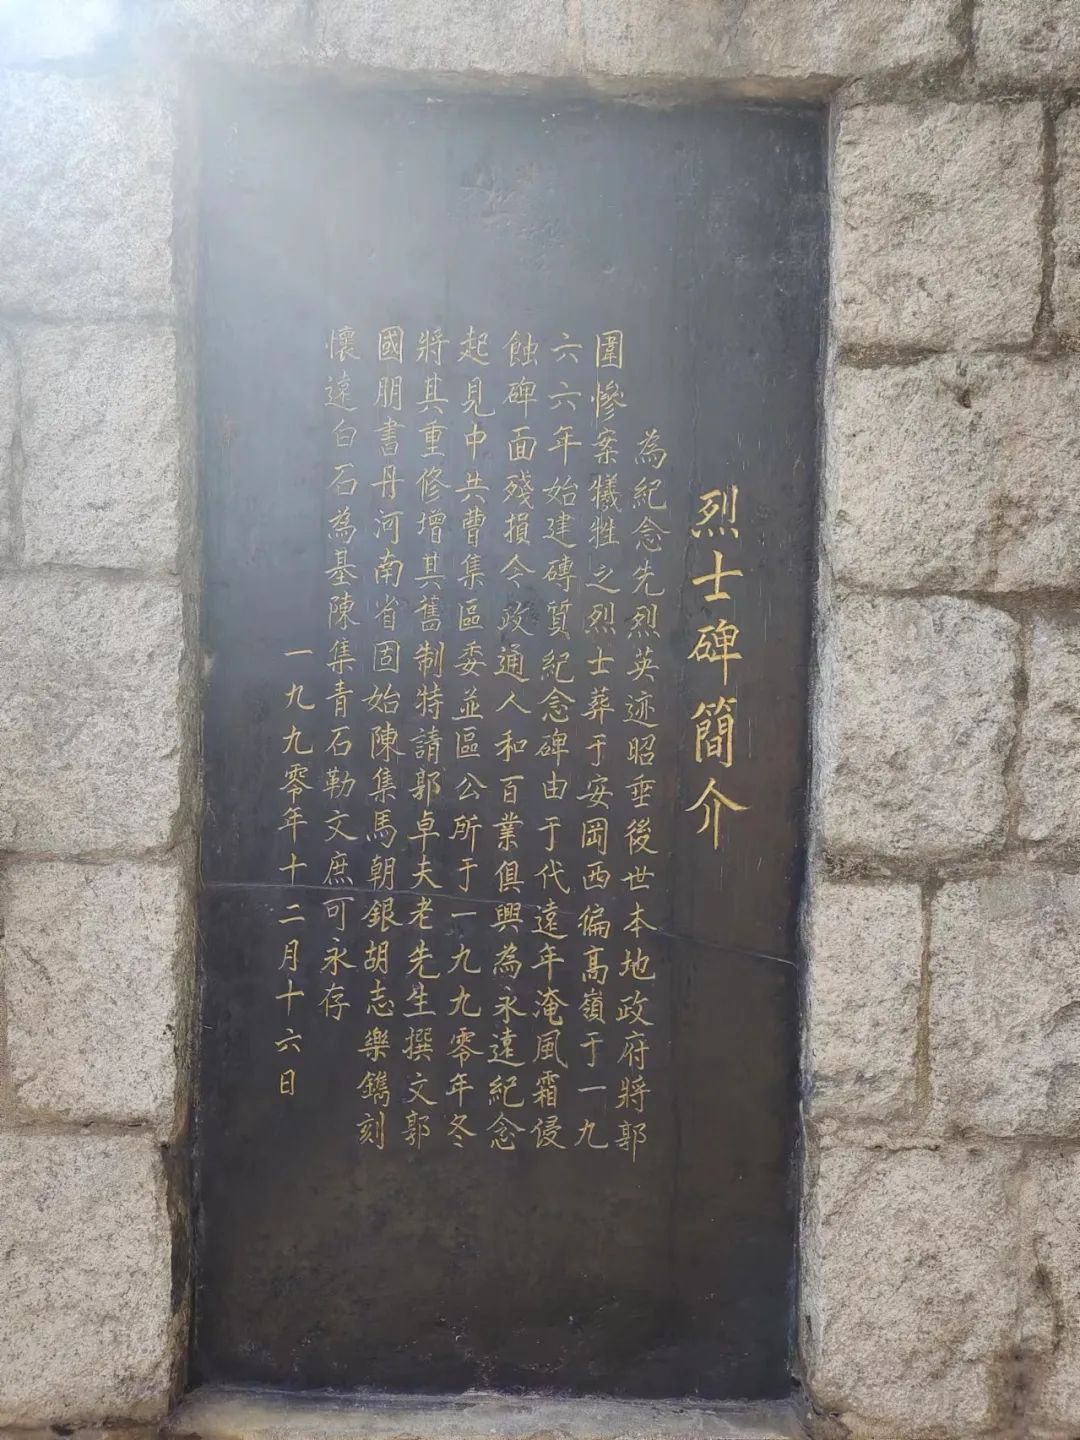 烈士碑簡介
為紀念先烈英迹昭垂後世本地政府將郭
圍慘案犧牲之烈士葬于安岡西偏高嶺于一九
六六年始建磚質紀念碑由于代遠年淹風霜侵
蝕碑面殘損今政通人和百業俱興為永遠紀念
起見中共曹集區委並區公所于一九九零年冬
將其重修增其舊制特請郭卓夫老先生撰文郭
國朋書丹河南省固始陳集馬朝銀胡志樂鐫刻
懷遠白石為基陳集青石勒文庶可永存
一九九零年十二月十六日